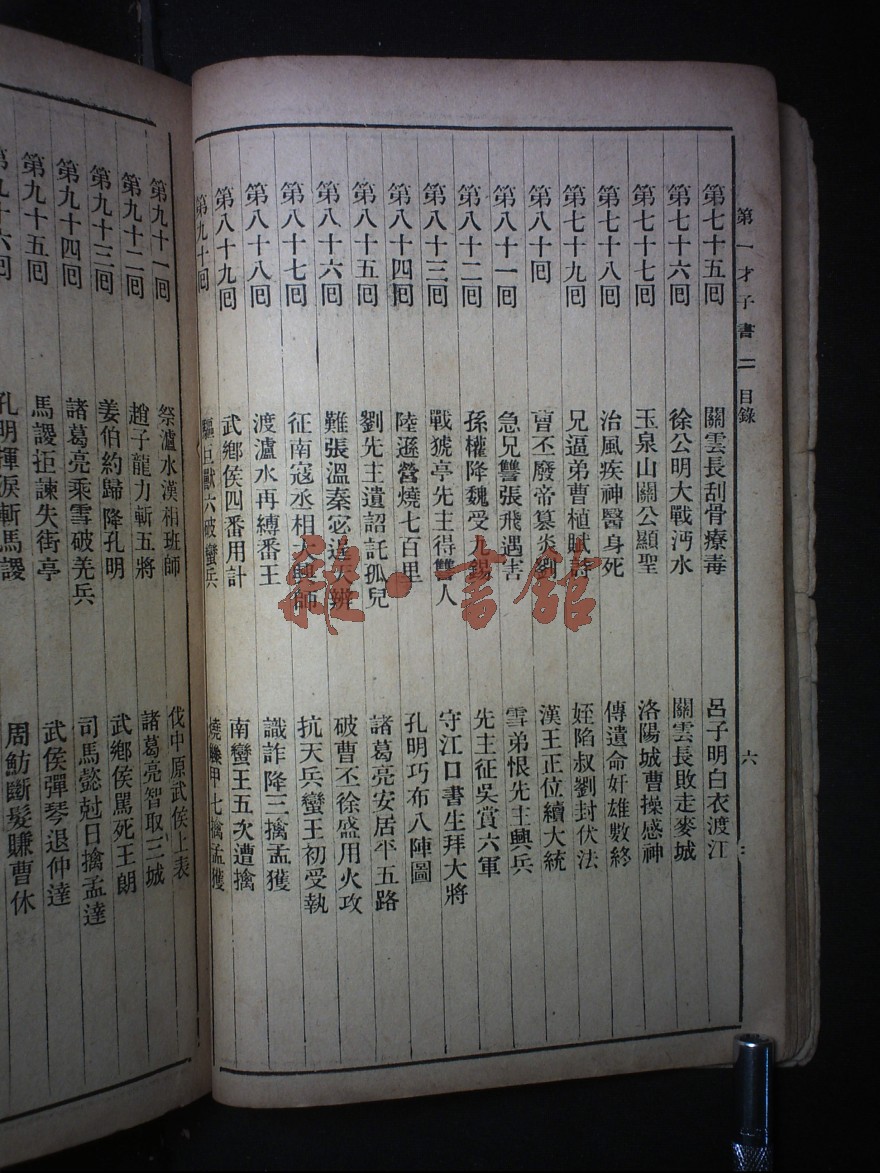 第一才子書 二 目錄 六
第七十五回 關雲長刮骨療毒 呂子明白衣渡江
第七十六回 徐公明大戰沔水 關雲長敗走麥城
第七十七回 玉泉山關公顯聖 洛陽城曹操感神
第七十八回 治風疾神醫身死 傳遺命奸雄數終
第七十九回 兄逼弟曹植賦詩 姪陷叔劉封伏法
第八十回 曹丕廢帝篡炎劉 漢王正位續大統
第八十一回 急兄讐張飛遇害 雪弟恨先主興兵
第八十二回 孫權降魏受九錫 先主征吳賞六軍
第八十三回 戰猇亭先主得讐人 守江口書生拜大將
第八十四回 陸遜營燒七百里 孔明巧布八陣圖
第八十五回 劉先主遺詔託孤兒 諸葛亮安居平五路
第八十六回 難張溫秦宓逞天辨 破曹丕徐盛用火攻
第八十七回 征南寇丞相大興師 抗天兵蠻王初受執
第八十八回 渡瀘水再縛番王 識詐降三擒孟獲
第八十九回 武鄉侯四番用計 南蠻王五次遭擒
第九十回 驅巨獸六破蠻兵 燒籐甲七擒孟獲
第九十一回 祭瀘水漢相班師 伐中原武侯上表
第九十二回 趙子龍力斬五將 諸葛亮智取三城
第九十三回 姜伯約歸降孔明 武鄉侯罵死王朗
第九十四回 諸葛亮乘雪破羌兵 司馬懿尅日擒孟達
第九十五回 馬謖拒諫失街亭 武侯彈琴退仲達
第九十六回 孔明揮淚斬馬謖 周魴斷髮賺曹休
雜·書館